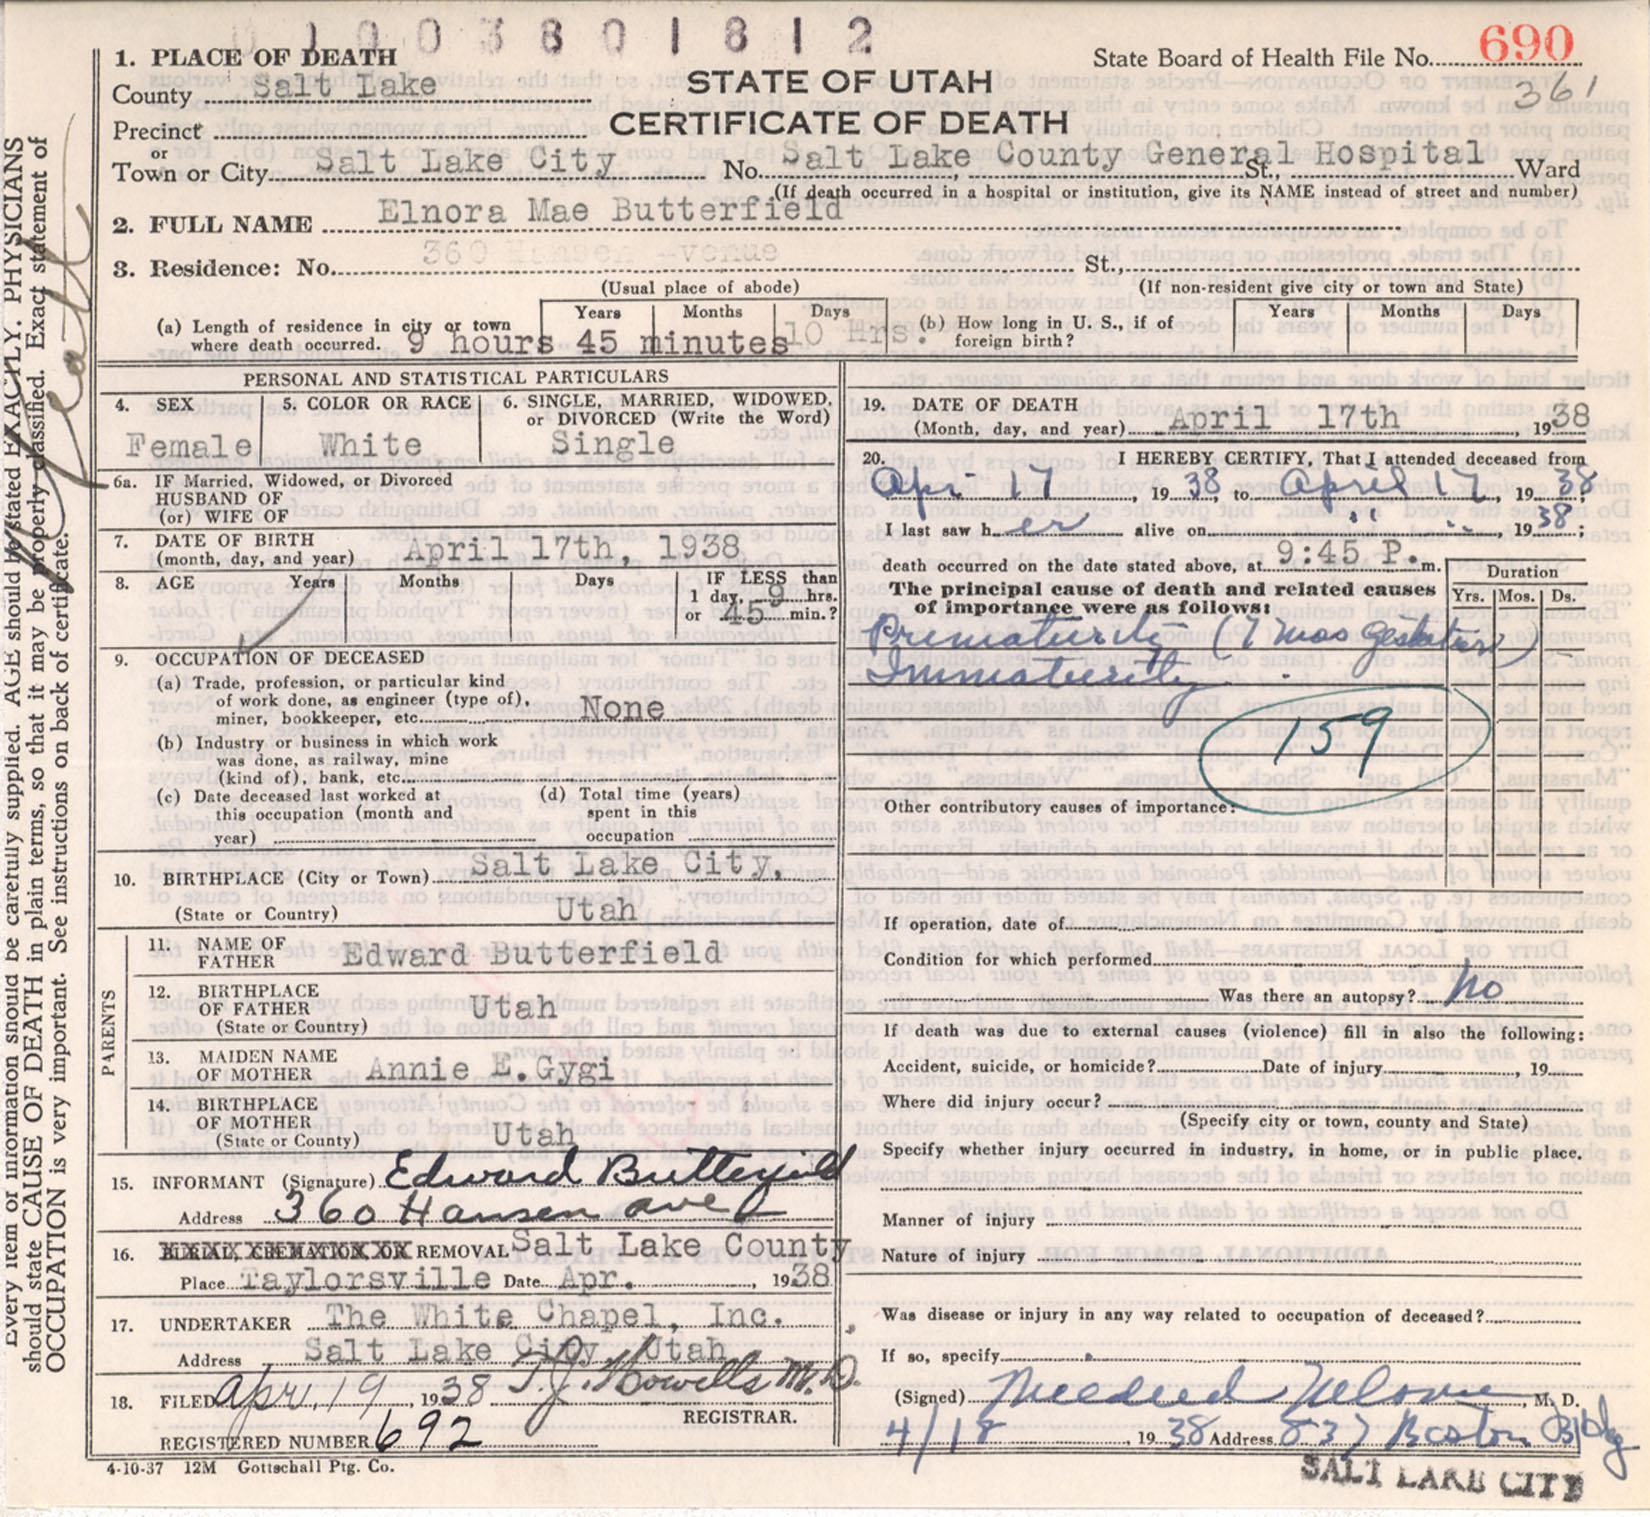 01003801812
State Board of Health File No. 690
361
STATE OF UTAH
CERTIFICATE OF DEATH
1. PLACE OF DEATH
County Salt Lake
Precinct
or
Town or City Salt Lake City No. Salt Lake County General Hospital St., Ward
(If death occurred in a hospital or institution, give its NAME instead of street and number)
2. FULL NAME Elnora Mae Butterfield
3. Residence: No. 360 Hansen -venue St.,
(Usual place of abode) (If non-resident give city or town and State)
(a) Length of residence in city or town where death occurred. Years Months Days
9 hours 45 minutes 10 Hrs.
(b) How long in U. S., if of foreign birth? Years Months Days
PERSONAL AND STATISTICAL PARTICULARS
4. SEX 5. COLOR OR RACE 6. SINGLE, MARRIED, WIDOWED,
or DIVORCED (Write the Word)
Female White Single
6a. IF Married, Widowed, or Divorced
HUSBAND OF
(or) WIFE OF
7. DATE OF BIRTH
(month, day, and year) April 17th, 1938
8. AGE Years Months Days IF LESS than
1 day, 9 hrs.
or 45 min.?
9. OCCUPATION OF DECEASED
(a) Trade, profession, or particular kind
of work done, as engineer (type of),
miner, bookkeeper, etc. None
(b) Industry or business in which work
was done, as railway, mine
(kind of), bank, etc.
(c) Date deceased last worked at
this occupation (month and
year)
(d) Total time (years)
spent in this
occupation
10. BIRTHPLACE (City or Town) Salt Lake City,
(State or Country) Utah
PARENTS
11. NAME OF
FATHER Edward Butterfield
12. BIRTHPLACE
OF FATHER
(State or Country) Utah
13. MAIDEN NAME
OF MOTHER Annie E. Gygi
14. BIRTHPLACE
OF MOTHER
(State or County) Utah
15. INFORMANT (Signature) Edward Butterfield
Address 360 Hansen ave
16. BURIAL, CREMATION OR REMOVAL Salt Lake County
Place Taylorsville Date Apr. , 1938
17. UNDERTAKER The White Chapel, Inc.
Address Salt Lake City, Utah
18. FILED Apr. 19, 1938 T. J. Howells M.D.
REGISTRAR.
REGISTERED NUMBER 692
4-10-37 12M Gottschall Ptg. Co.
19. DATE OF DEATH
(Month, day, and year) April 17th , 1938
20. I HEREBY CERTIFY, That I attended deceased from
Apr 17, 1938 to April 17, 1938;
I last saw her alive on " " , 1938;
death occurred on the date stated above, at 9:45 P. m.
The principal cause of death and related causes
of importance were as follows:
Duration
Yrs. Mos. Ds.
Prematurity (7 mos gestation)
Immaturity
159
Other contributory causes of importance:
If operation, date of
Condition for which performed
Was there an autopsy? no
If death was due to external causes (violence) fill in also the following:
Accident, suicide, or homicide? Date of injury , 19
Where did injury occur?
(Specify city or town, county and State)
Specify whether injury occurred in industry, in home, or in public place.
Manner of injury
Nature of injury
Was disease or injury in any way related to occupation of deceased?
If so, specify
(Signed) Mildred Nelson, M. D.
4/18 , 1938 Address 837 Boston Bldg
SALT LAKE CITY
Every item of information should be carefully supplied. AGE should be stated EXACTLY. PHYSICIANS
should state CAUSE OF DEATH in plain terms, so that it may be properly classified. Exact statement of
OCCUPATION is very important. See instructions on back of certificate.